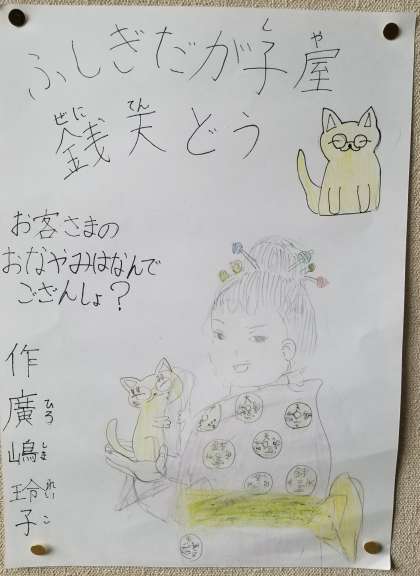 ふしぎだが子屋
し
や
銭天どう
ぜに
てん
お客さまの
おなやみはなんで
ござんしょ？
作
廣嶋玲子
ひろ
しま
れい
こ